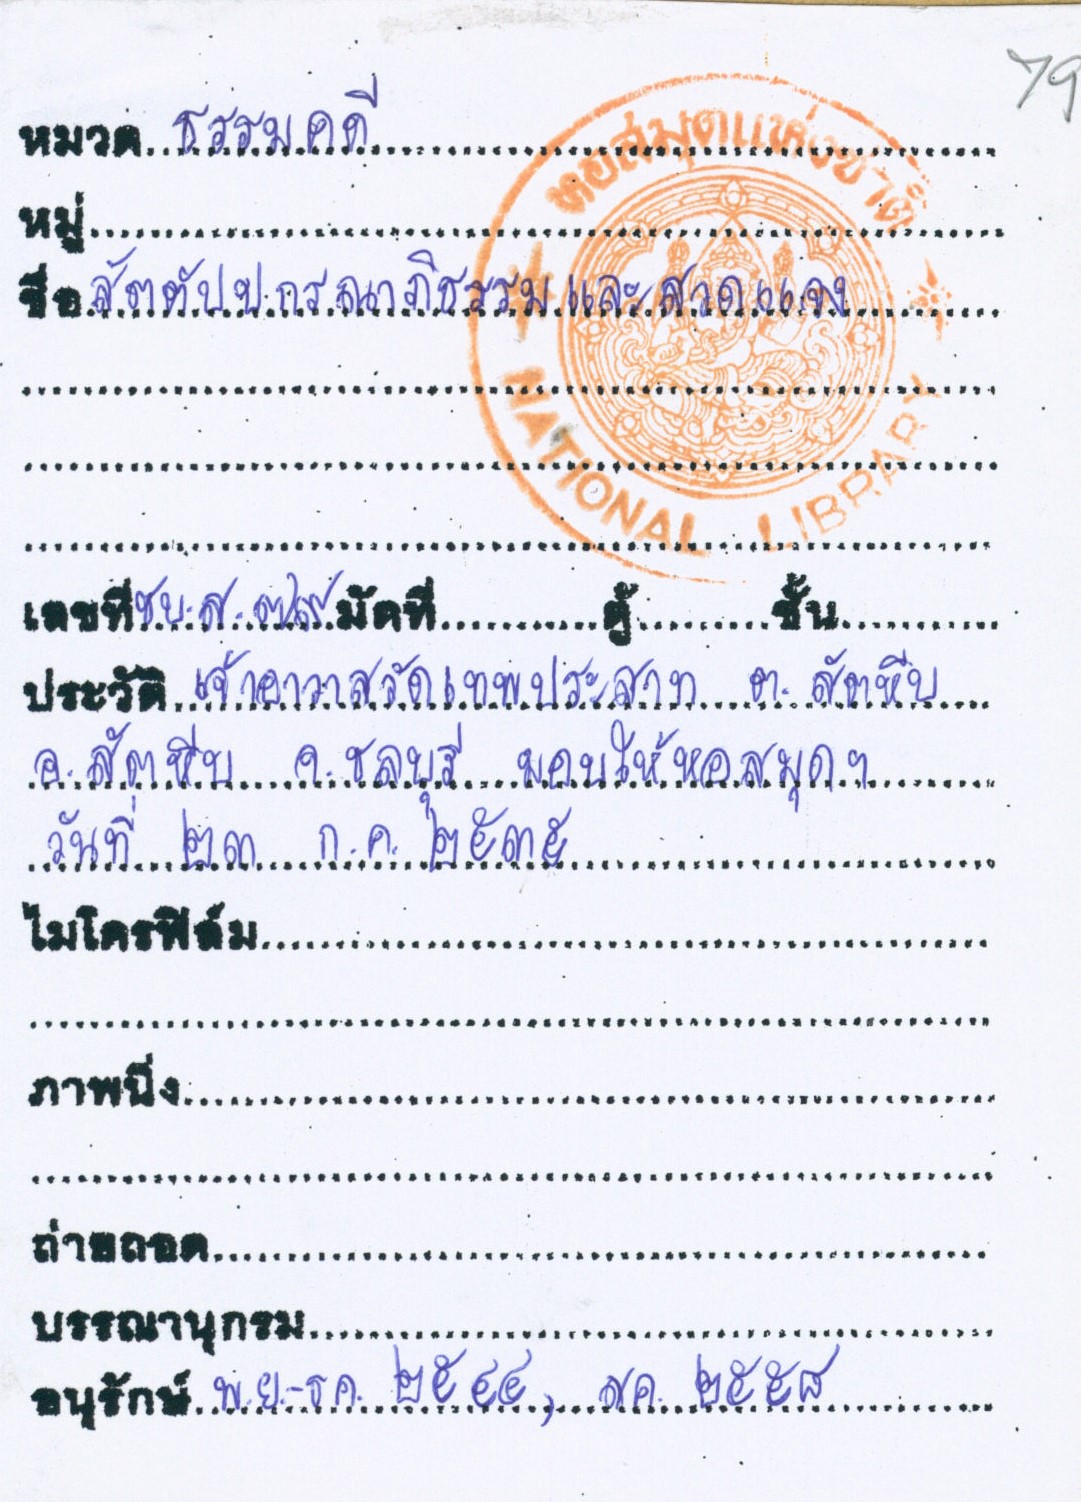 79
หอสมุดแห่งชาติ
NATIONAL LIBRARY
หมวด ธรรมคดี
หมู่
ชื่อ สัตตัปปกรณาภิธรรม และ สวดแจง
เลขที่ ชบ.ส. ๓๗๙ มัดที่ ตู้ ชั้น
ประวัติ เจ้าอาวาสวัดเทพประสาท ต. สัตหีบ
อ. สัตหีบ จ. ชลบุรี มอบให้หอสมุดฯ
วันที่ ๒๓ ก.ค. ๒๕๓๕
ไมโครฟิล์ม
ภาพนิ่ง
ถ่ายถอด
บรรณานุกรม
อนุรักษ์ พ.ย.-ธค. ๒๕๔๔, สค. ๒๕๕๘